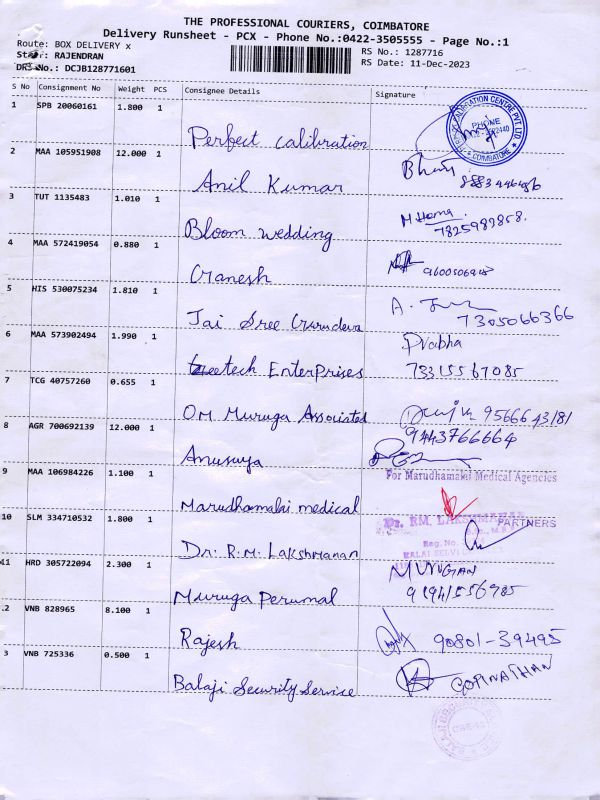 THE PROFESSIONAL COURIERS, COIMBATORE
Delivery Runsheet - PCX - Phone No.:0422-3505555 - Page No.:1
Route: BOX DELIVERY x
RS No.: 1287716
RAJENDRAN
RS Date: 11-Dec-2023
No.: DCJB128771601
S No Consignment No Weight PCS Consignee Details Signature
1 SPB 20060161 1.800 1
Perfect calibration
PHONE
COIMBATORE
2 MAA 105951908 12.000 1
Anil Kumar
3 TUT 1135483 1.010 1
Bloom wedding
M Hema
7825989858.
4 MAA 572419054 0.880 1
Granesh
5 HIS 530075234 1.810 1
Jai Sree Gurudeva
7305066366
6 MAA 573902494 1.990 1
Prabha
Enterprises
7331556 7085
7 TCG 40757260 0.655 1
OM Muruga Associated
8 AGR 700692139 12.000 1
9443766664
Anusuya
For Marudhamalai Medical Agencies
9 MAA 106984226 1.100 1
Marudhamalai medical
PARTNERS
10 SLM 334710532 1.800 1
Dr. RM. LAKSHMANAN
Reg. No.
Dr. R.M. Lakshmanan
11 HRD 305722094 2.300 1
MURUGAN
Muruga Perumal
.2 VNB 828965 8.100 1
Rajesh
90801-39495
3 VNB 725336 0.500 1
GOPINATHAN
Balaji Security Service